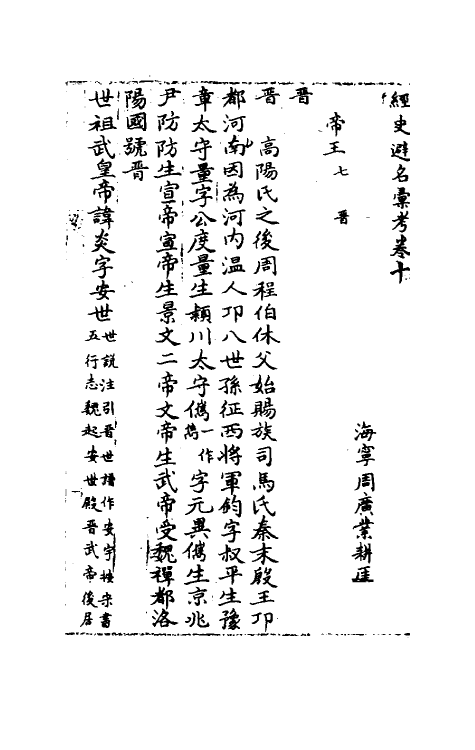 經史避名彙考卷十
海寧周廣業耕厓
帝王七 晉
晉
晉 高陽氏之後周程伯休父始賜族司馬氏秦末殷王卬
都河南因為河内温人卬八世孫征西將軍鈞字叔平生豫
章太守量字公度量生潁川太守儁一作雋字元異儁生京兆
尹防防生宣帝宣帝生景文二帝文帝生武帝受魏禪都洛
陽國號晉
世祖武皇帝諱炎字安世世説注引晉世譜作安宇按宋書
五行志魏起安世殿晉武帝後居